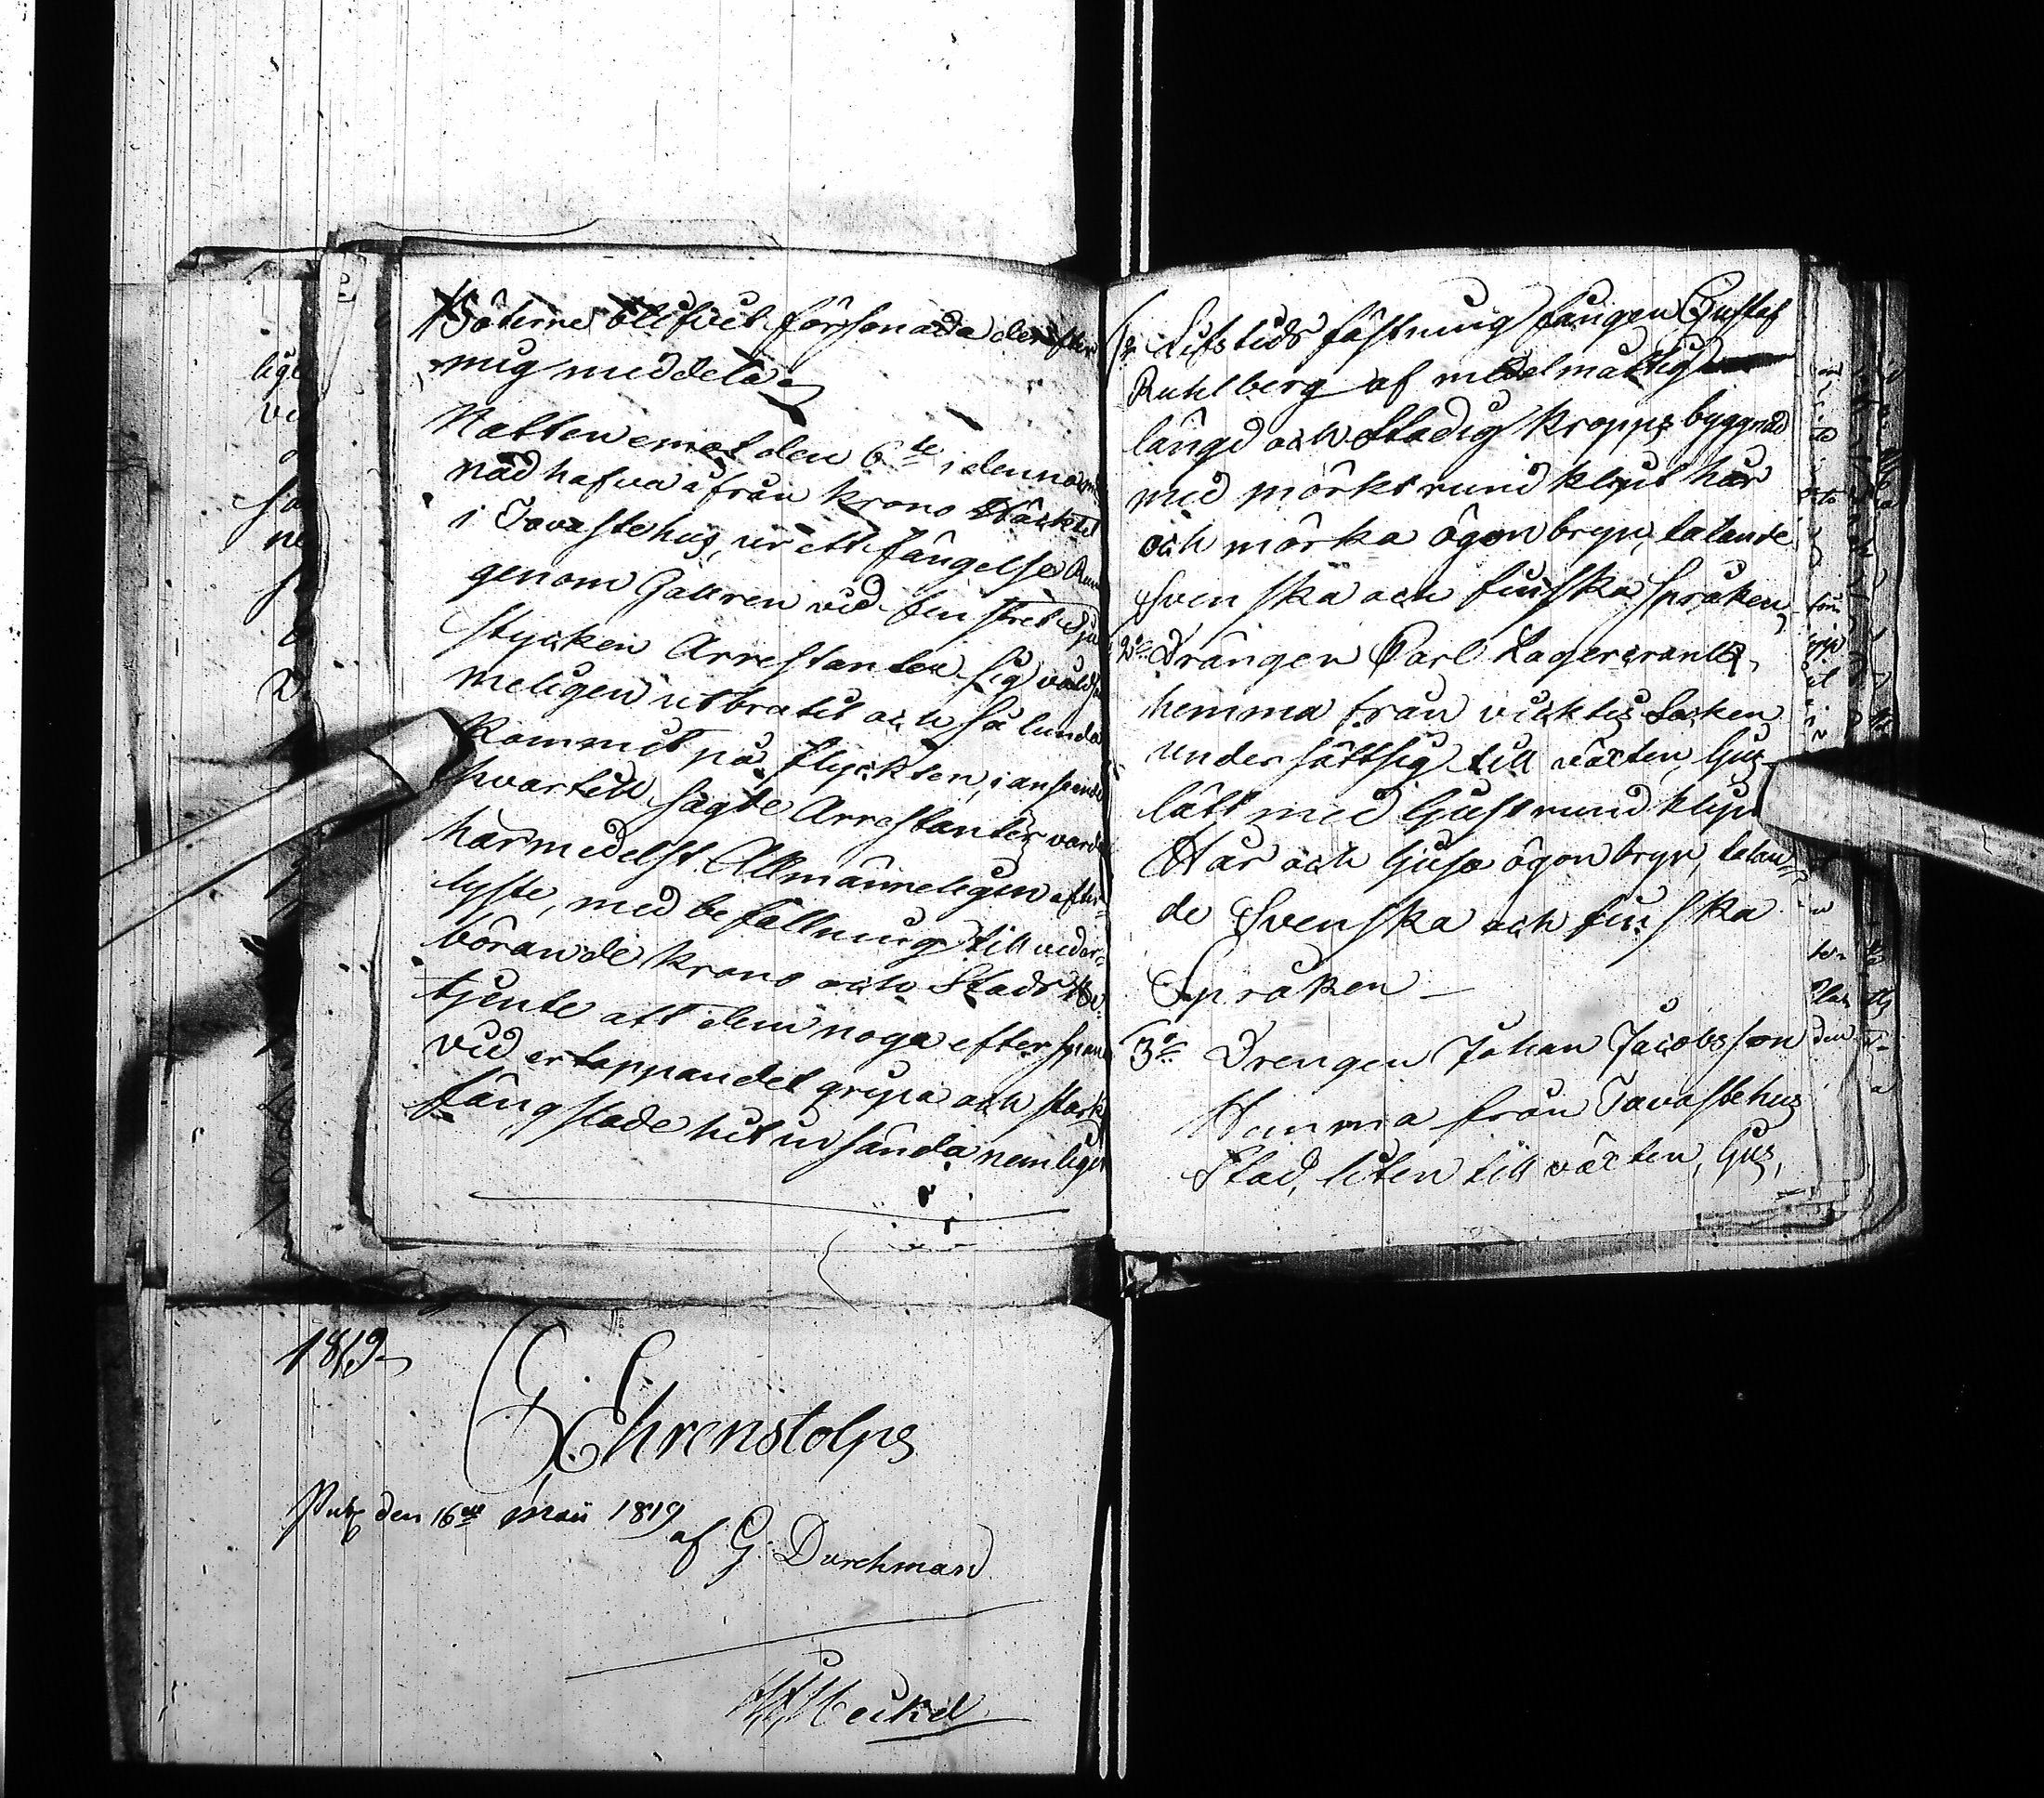 Böterne blifvit försonade derefter
mig meddela
Natten emot den 6te i denna må
nad hafva ifrån Krono Häktet
i Tavastehus, ur ett fängelse Rum
genom Gallren vid fenstret Sju
stycken Arrestanter sig våldsam
meligen utbrutit och så lunda
kommit på flyckten, i anseende
hvartill sagde Arrestanter varda
härmedelst Allmänneligen efter-
lyste, med befallning till veder-
börande Krono och Stads Be-
tjente att dem noga efterspana
vid ertappandet gripa och starkt
fängslade hit insända nemligen
1o Lifstids fästnings fången Gustaf
Ruhlberg af medelmåttig
längd och stadig kropps byggnad
med mörkt rund klipt hår
och mörka ögonbryn, talande
Svenska och finska språken,
2o Drängen Carl Lagercrantz,
hemma från Vicktis Socken
undersättsig till växten, ljus-
lätt med ljust rund klipt
Hår och ljusa ögonbryn, talan-
de Svenska och finska
Språken –
3o Drengen Johan Jacobsson
Hemma från Tavastehus
Stad, liten till växten, ljus,
1819
G: Ehrenstolpe
Publ den 16de Maii 1819
af G. Durchman